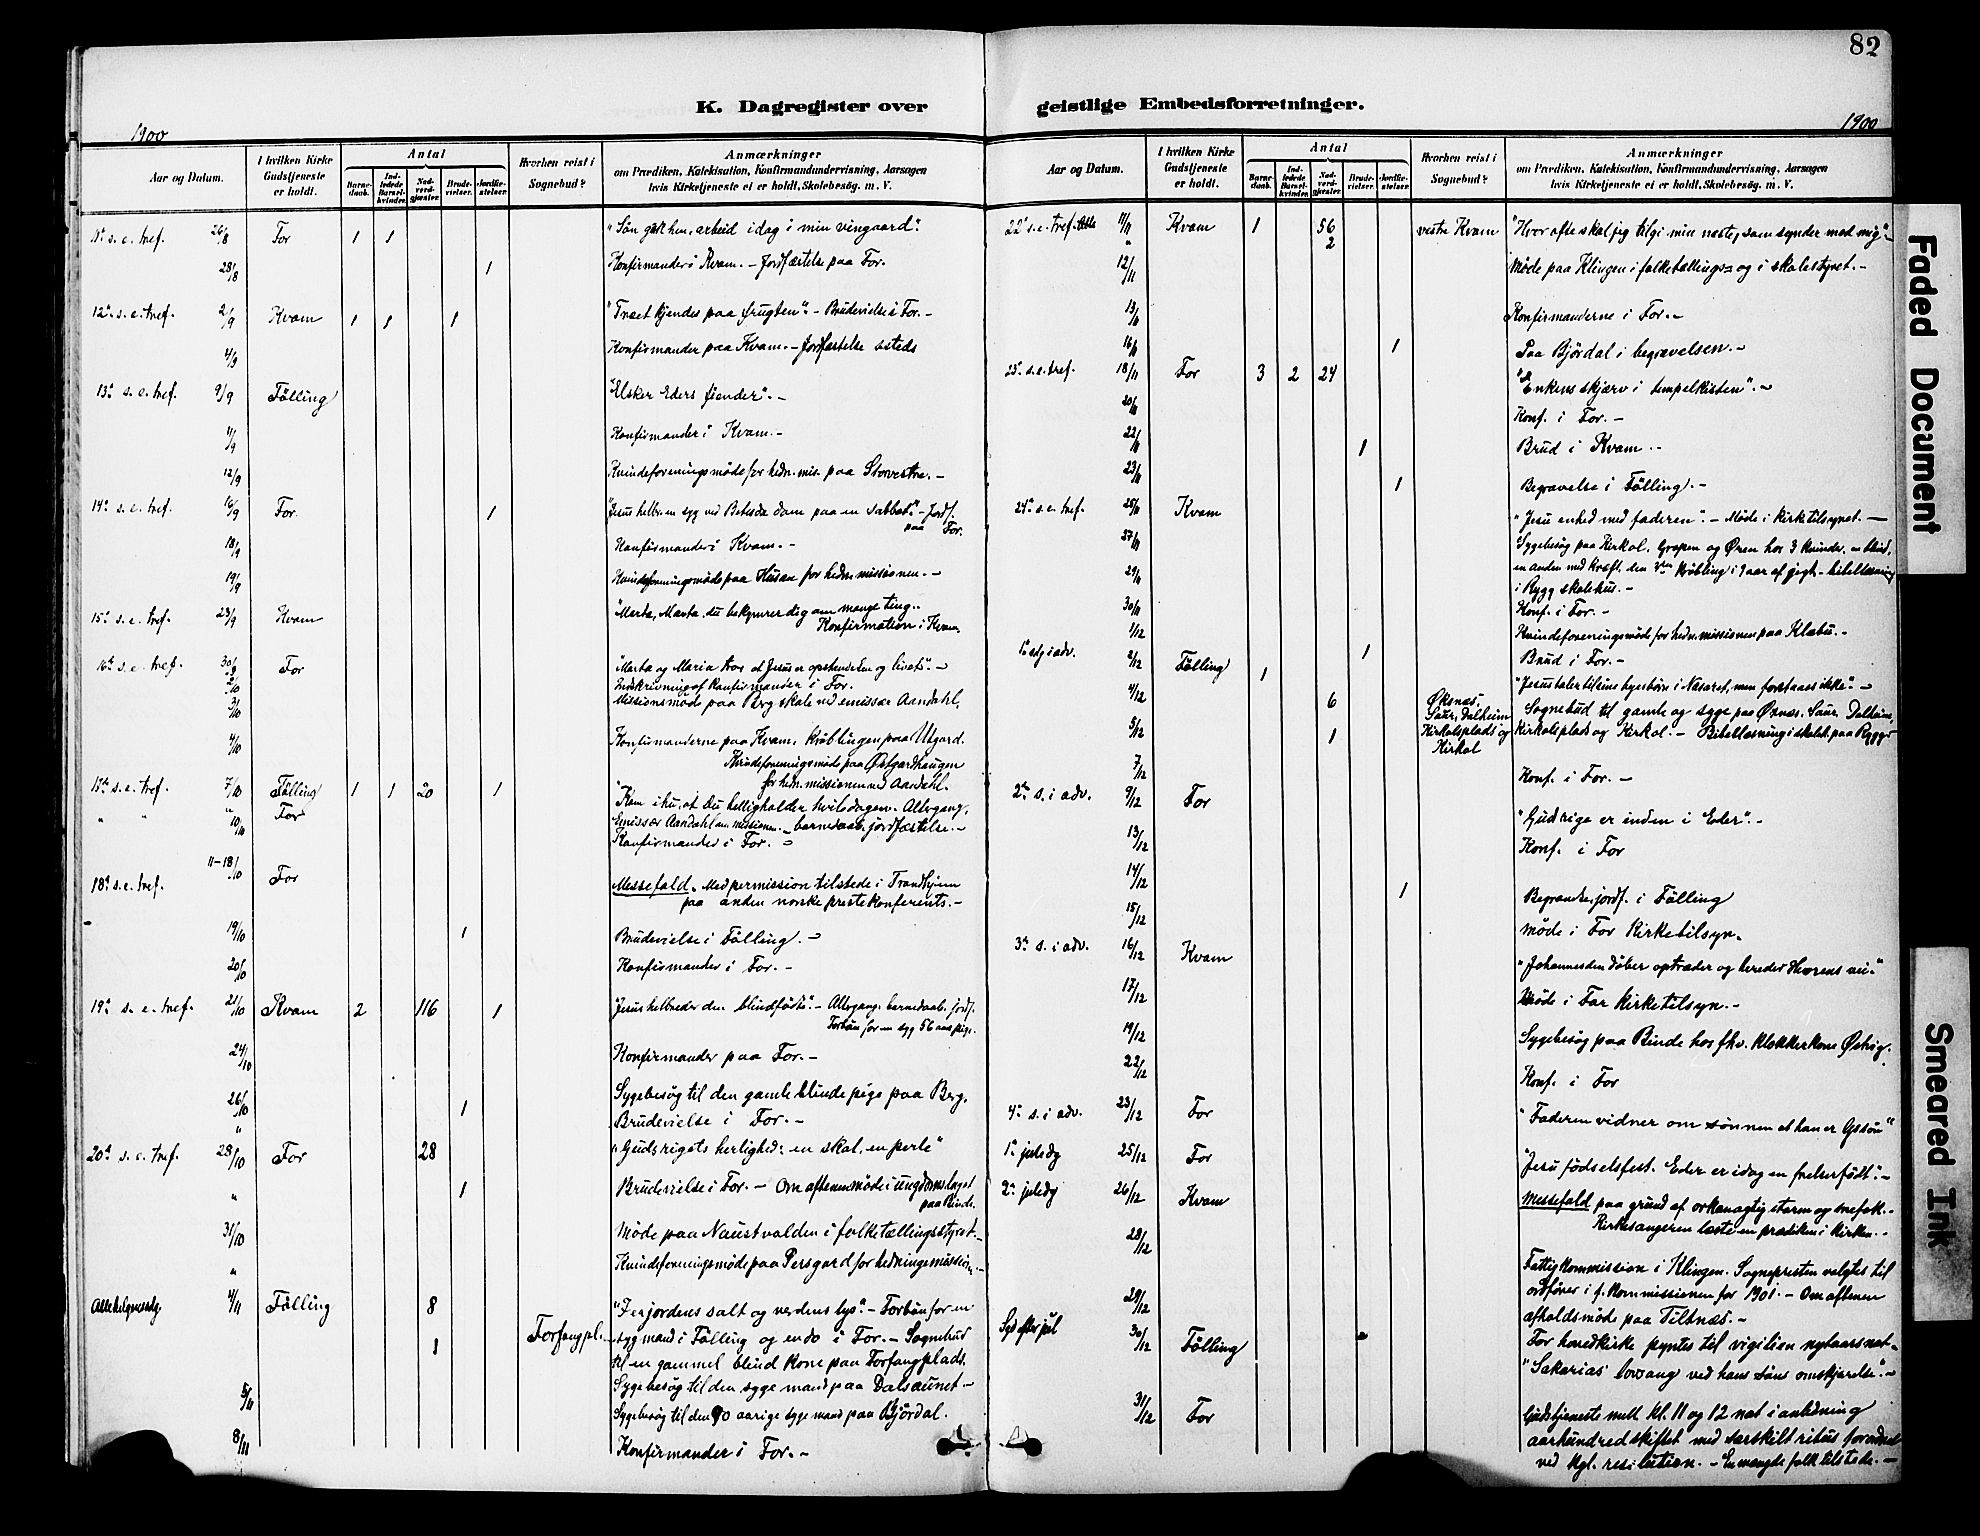 82
K. Dagregister over geistlige Embedsforretninger.
1900
Aar og Datum.
I hvilken Kirke Gudstjeneste er holdt.
Antal
Barnedaab.
Indledede Barselkvinder.
Nadverdgjæster.
Brudevielser.
Jordfæstelser.
Hvorhen reist i Sognebud?
Anmærkninger
om Prædiken, Katekisation, Konfirmandundervisning, Aarsagen
hvis Kirketjeneste ei er holdt, Skolebesøg, m. V.
11te s. e. tref. 26/8 For 1 1 "Søn gaa hen, arbeid idag i min vingaard".
28/8 1 Konfirmander i Kvam. – Jordfæstelse paa For.
12te s. e. tref. 2/9 Kvam 1 1 1 "Træet kjendes paa frugten". – Brudevielse i For. –
4/9 Konfirmander paa Kvam. – Jordfæstelse ssteds
13de s. e. tref. 9/9 Følling "Elsker Eders fiender". –
11/9 Konfirmander i Kvam. –
12/9 Kvindeforeningsmøde for hedn. mis. paa Storvestre. –
14de s. e. tref. 16/9 For 1 "Jesus helbr. en syg ved Betesda dam paa en sabbat". – Jordf.
paa For.
18/9 Konfirmander i Kvam. –
19/9 Kvindeforeningsmøde paa Husan for hedn. missionen. –
15de s. e. tref. 23/9 Kvam "Marta, Marta, du bekymrer dig om mange ting..
Konfirmation i Kvam.
16de s. e. tref. 30/9 For "Marta og Maria tror at Jesus er opstandelsen og livet". –
2/10 Indskrivning af Konfirmander i For.
3/10 Missionsmøde paa Berg skole ved emissær Aandahl.
4/10 Konfirmanderne paa Kvam, krøblingen paa Utgard.
Kvindeforeningsmøde paa Østgardhaugen
for hedn. missionen ved Aandahl.
17de s. e. tref. 7/10 Følling 1 1 20 1 "Kom ihu, at Du helligholder hviledagen. Altergang,
" " " 10/ For Emissær Aandahl om missionen. – barnedaab, jordfæstelse. –
Konfirmander i For. –
11–18/10
18de s. e. tref. For Messefald. Med permission tilstede i Trondhjem
paa anden norske prestekonferents. –
19/10 1 Brudevielse i Følling. –
20/10 Konfirmander i For. –
19de s. e. tref. 21/10 Kvam 2 116 1 "Jesus helbreder den blindfødte". – Altergang, barnedaab, jordf.
Forbøn for en syg 56 aars pige.
24/10 Konfirmander paa For. –
26/10 Sygebesøg til den gamle blinde pige paa Berg.
" 1 Brudevielse i For. –
20de s. e. tref. 28/10 For 28 "Gudsrigets herlighed: en skat, en perle"
" 1 Brudevielse i For. – Om aftenen møde i ungdomslaget
paa Binde.
31/10 Møde paa Naustvolden i folketællingsstyret. –
" Kvindeforeningsmøde paa Persgard for hedningemission. –
Allehelgensdag. 4/11 Følling 8 "I er jordens salt og verdens lys". – Forbøn for en
1 Forfangpl. syg mand i Følling og en do i For. – Sognebud
til en gammel blind kone paa Forfangplads.
5/11 Sygebesøg til den syge mand paa Dalsaunet –
Sygebesøg til den 90 aarige syge mand paa Bjørdal.
8/11 Konfirmander i For. –
1900
Aar og Datum.
I hvilken Kirke Gudstjeneste er holdt.
Antal
Barnedaab.
Indledede Barselkvinder.
Nadverdgjæster.
Brudevielser.
Jordfæstelser.
Hvorhen reist i Sognebud?
Anmærkninger
om Prædiken, Katekisation, Konfirmandundervisning, Aarsagen
hvis Kirketjeneste ei er holdt, Skolebesøg, m. V.
22de s. e. tref. 11/11 Kvam 1 56 vestre Kvam "Hvor ofte skal jeg tilgi min neste, som synder mod mig". –
" 2
12/11 Møde paa Klingen i folketællings- og i skolestyret. –
13/11 Konfirmanderne i For. –
16/11 1 Paa Bjørdal i begravelsen. –
23de s. e. tref. 18/11 For 3 2 24 "Enkens skjærv i tempelkisten". –
20/11 Konf. i For. –
22/11 1 Brud i Kvam. –
23/11 1 Begravelse i Følling. –
24de s. e. tref. 25/11 Kvam "Jesu enhed med faderen". – Møde i kirketilsynet. –
27/11 Sygebesøg paa Kirkol, Grapen og Øren hos 3 kvinder, en blind,
en anden med kræft, den 3die krøbling i 9 aar af gigt. – bibellæsning
29/11 i Rygg skolehus. –
30/11 Konf. i For. –
1/12 Kvindeforeningsmøde for hedn. missionen paa Klæbu. –
1 Brud i For. –
1ste sdg i adv. 2/12 Følling 1 "Jesus taler til sine byesbørn i Nasaret, men forstaaes ikke". –
4/12 6 Øksnæs, Saur, Dalheim Sognebud til gamle og syge paa Øxnæs, Saur, Dalheim,
5/12 1 Kirkolsplads og Kirkol Kirkolsplads og Kirkol. – Bibellæsning i skolest. paa Rygg.
7/12 Konf. i For. –
2den s. i adv. 9/12 For "Guds rige er inden i Eder". –
13/12 Konf. i For
14/12 1 Begravelse, jordf. i Følling
15/12 Møde i For Kirketilsyn.
3die s. i adv. 16/12 Kvam "Johannes den døber optræder og bereder Herrens vei".
17/12 Møde i For Kirketilsyn. –
19/12 Sygebesøg paa Binde hos fhv. klokkerkone
22/12 Konf. i For
4de s. i adv. 23/12 For "Faderen vidner om sønnen at han er Gs søn"
1ste juledg 25/12 For "Jesu fødselsfest. Eder er idag en frelser født". –
2den juledg 26/12 Kvam Messefald paa grund af orkanagtig storm og snefok. –
Kirkesangeren læste en prædiken i kirken. –
28/12 Fattigkommission i Klingen. Sognepresten valgtes til
ordfører i f. kommissionen for 1901. – Om aftenen
afholdsmøde paa Tiltnæs. –
29/12 For hovedkirke pyntes til vigilien nytaarsnat. –
Sgd efter jul 30/12 Følling "Sakarias' lovsang ved hans søns omskjærelse". –
31/12 For Gudstjeneste mell. kl. 11 og 12 nat i anledning
aarhundredskiftet med særskilt ritus forordnet
ved kgl. resolution. – En mængde folk tilstede. –
Faded Document
Smeared Ink